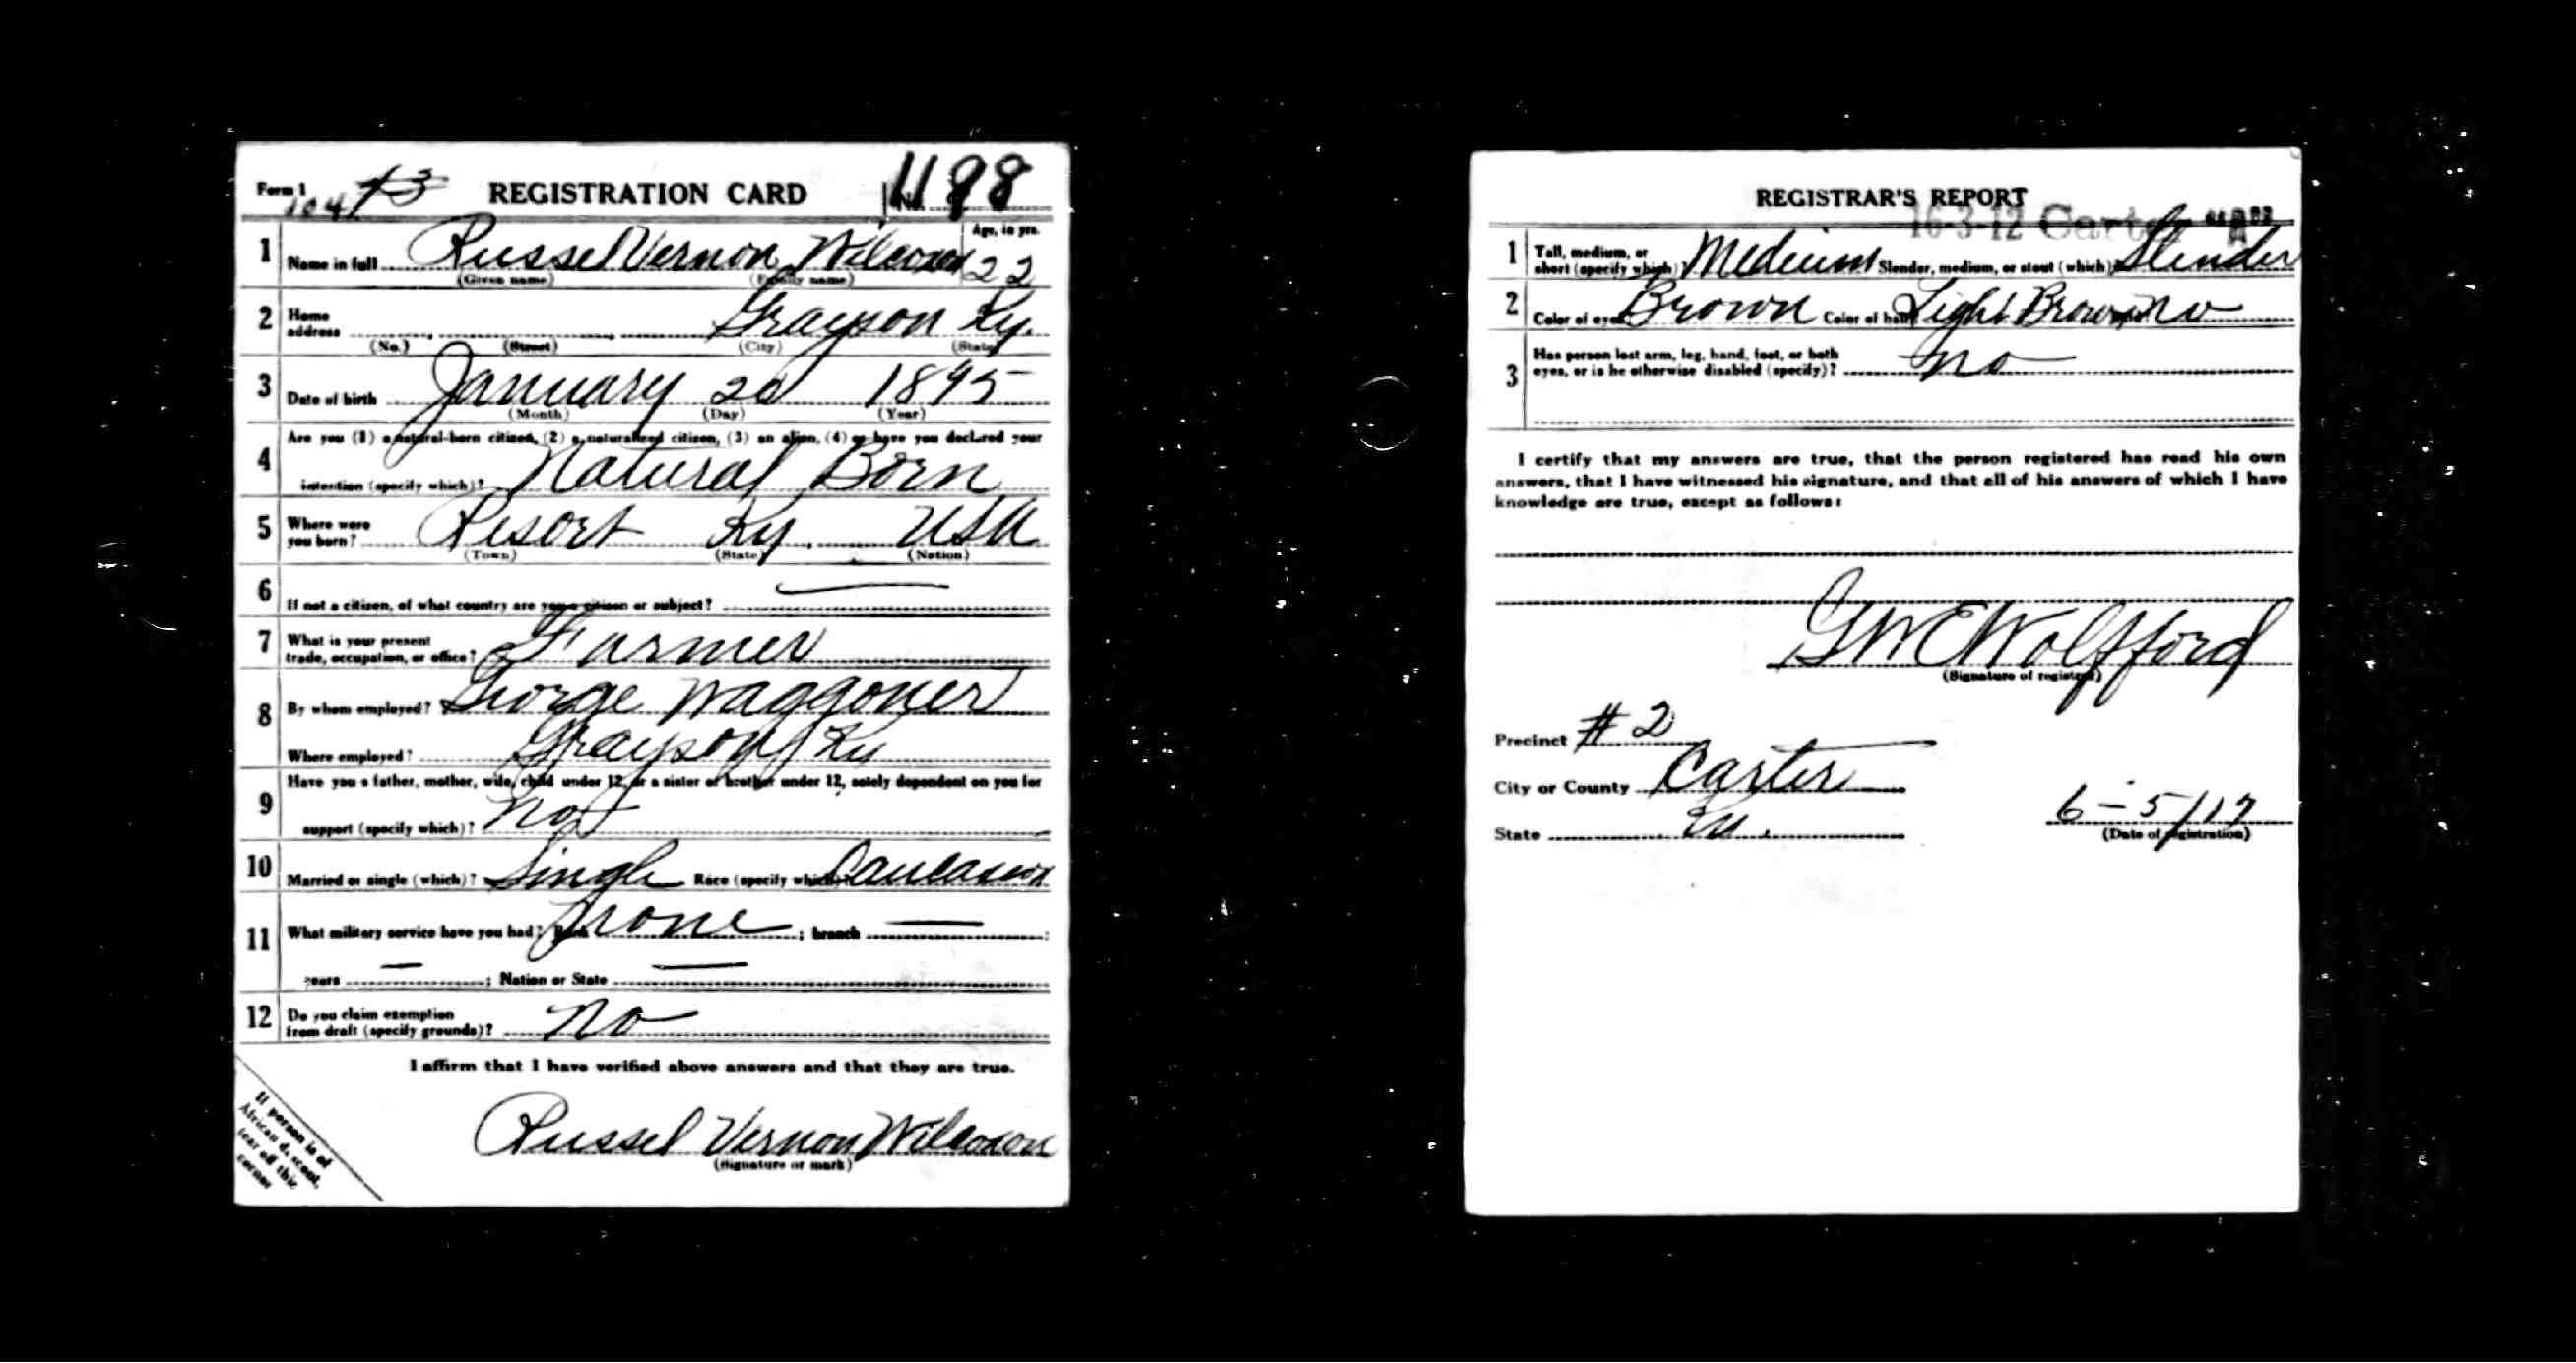 Form 1 104 43 REGISTRATION CARD No. 1198
1 Name in full Russel Vernon Wilcoxon Age, in yrs. 22
(Given name) (Family name)
2 Home address Grayson Ky.
(No.) (Street) (City) (State)
3 Date of birth January 20 1895
(Month) (Day) (Year)
4 Are you (1) a natural-born citizen, (2) a naturalized citizen, (3) an alien, (4) or have you declared your
intention (specify which)? Natural Born
5 Where were you born? Resort Ky. USA
(Town) (State) (Nation)
6 If not a citizen, of what country are you a citizen or subject? —
7 What is your present trade, occupation, or office? Farmer
8 By whom employed? George Waggoner
Where employed? Grayson Ky
9 Have you a father, mother, wife, child under 12, or a sister or brother under 12, solely dependent on you for
support (specify which)? No
10 Married or single (which)? Single Race (specify which)? Caucasion
11 What military service have you had? Rank None ; branch — ;
years — ; Nation or State —
12 Do you claim exemption from draft (specify grounds)? No
I affirm that I have verified above answers and that they are true.
Russel Vernon Wilcoxon
(Signature or mark)
If person is of
African descent,
tear off this
corner
REGISTRAR'S REPORT
16-3-12 Carter A
1 Tall, medium, or short (specify which)? Medium Slender, medium, or stout (which)? Slender
2 Color of eyes Brown Color of hair Light Brown No
3 Has person lost arm, leg, hand, foot, or both
eyes, or is he otherwise disabled (specify)? No
I certify that my answers are true, that the person registered has read his own
answers, that I have witnessed his signature, and that all of his answers of which I have
knowledge are true, except as follows:
GWE Wolfford
(Signature of registrar)
Precinct #2
City or County Carter
State Ky. 6-5/17
(Date of registration)